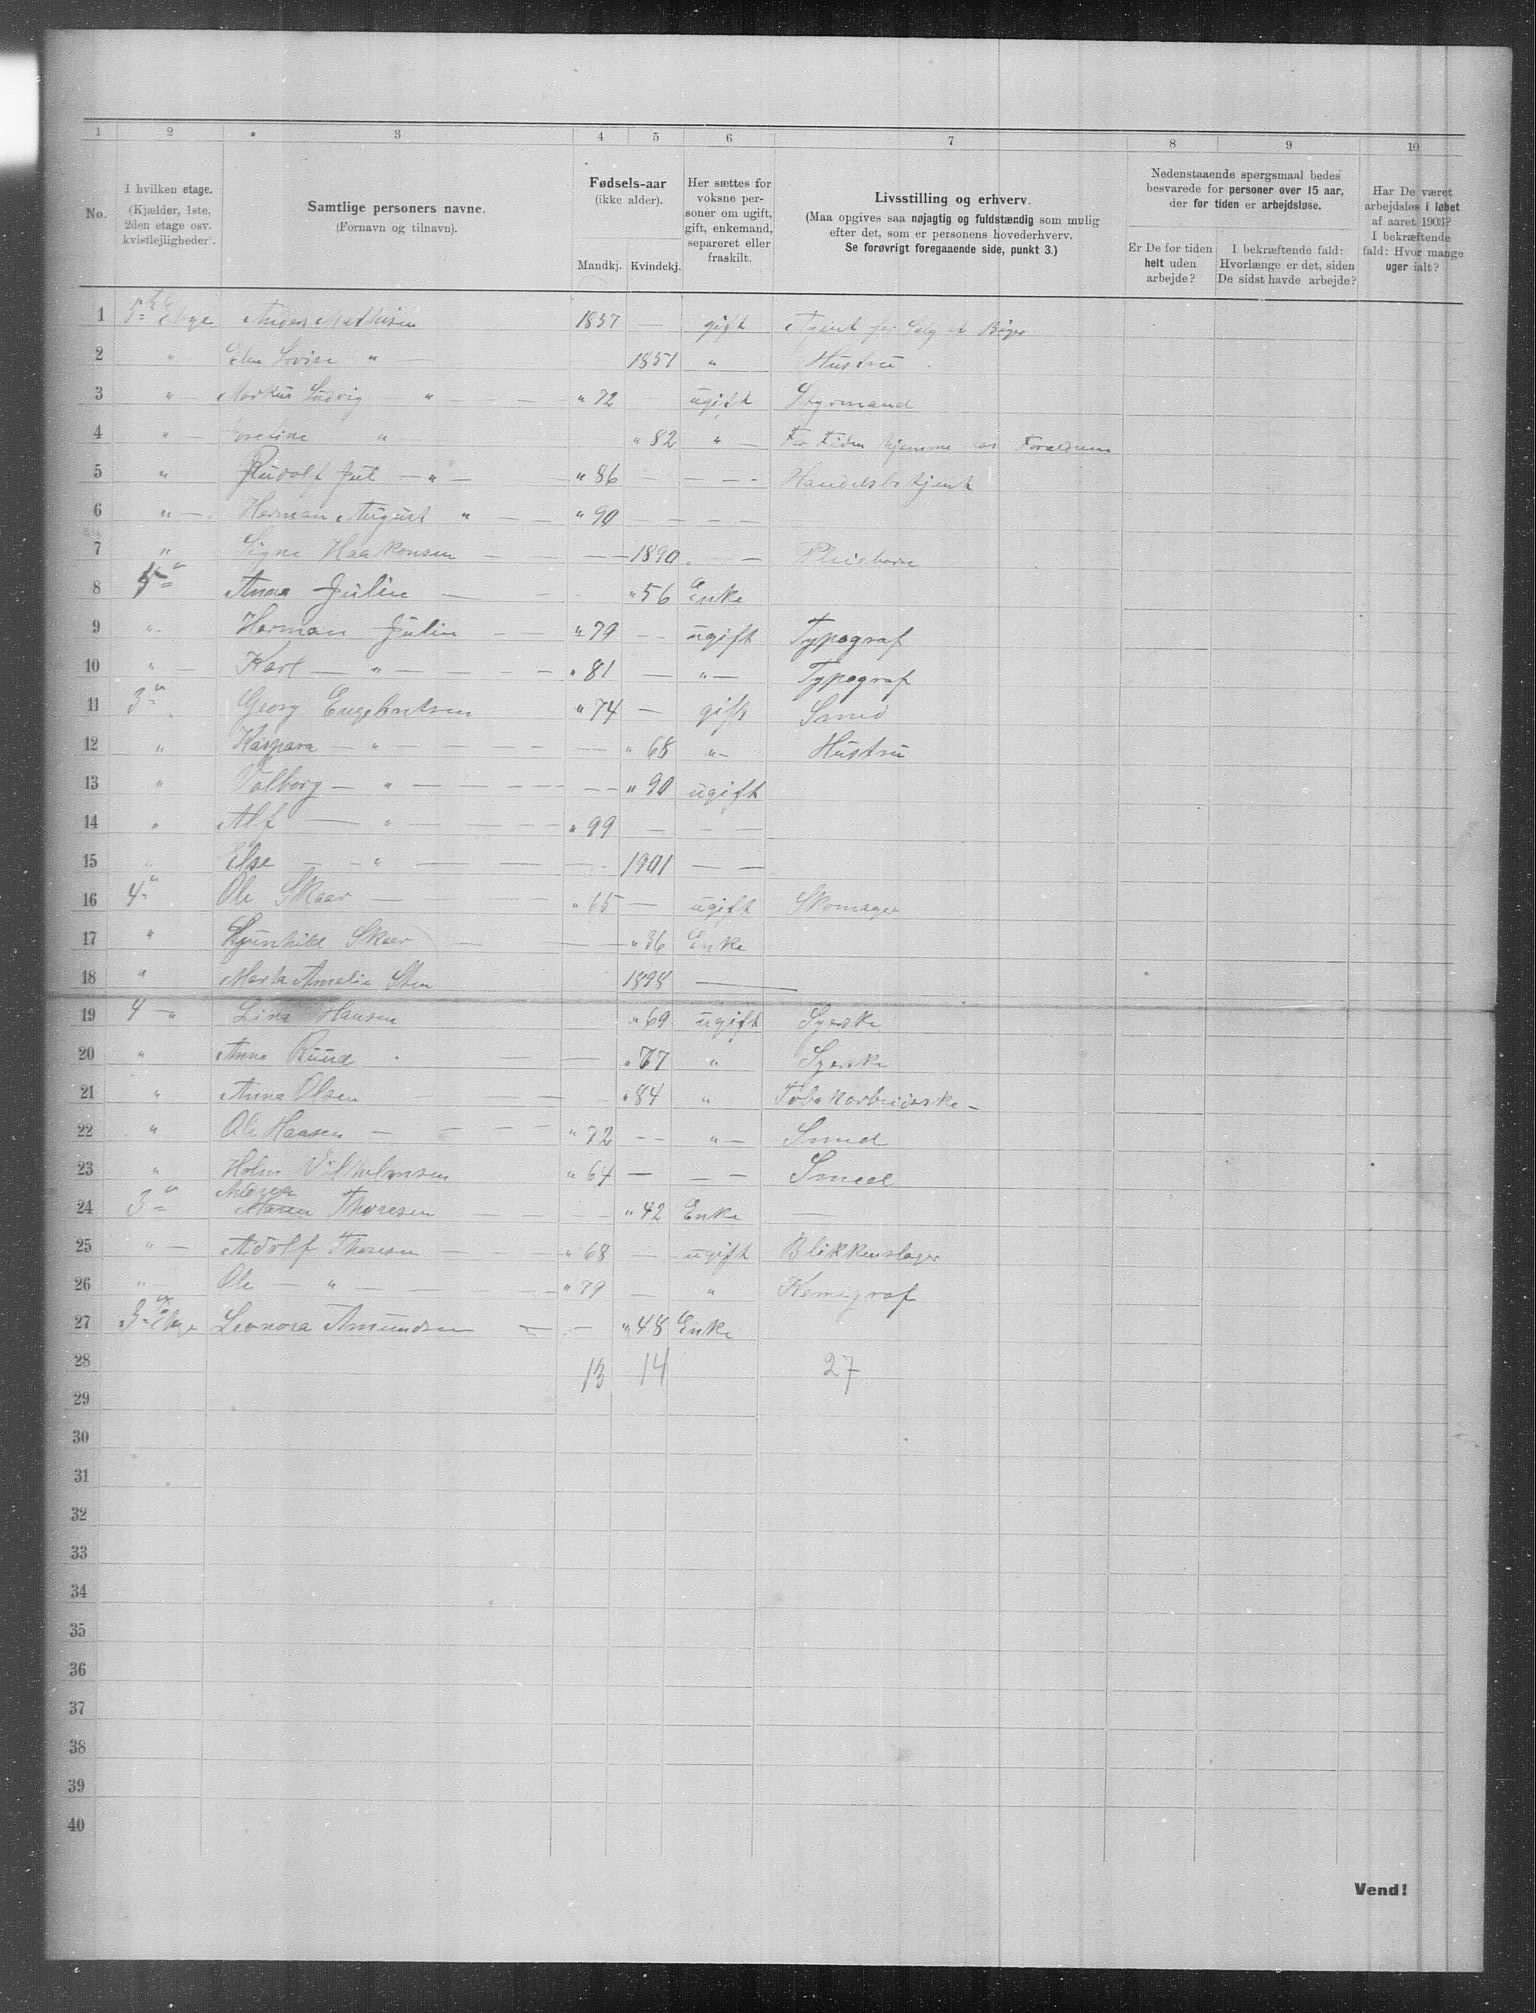 1 2 3 4 5 6 7 8 9 10
No.
I hvilken etage.
(Kjælder, 1ste,
2den etage osv.
kvistlejligheder).
Samtlige personers navne.
(Fornavn og tilnavn).
Fødsels-aar
(ikke alder).
Mandkj. Kvindekj.
Her sættes for
voksne per-
soner om ugift,
gift, enkemand,
separeret eller
fraskilt.
Livsstilling og erhverv.
(Maa opgives saa nøjagtig og fuldstændig som mulig
efter det, som er personens hovederhverv.
Se forøvrigt foregaaende side, punkt 3.)
Nedenstaaende spørgsmaal bedes
besvarede for personer over 15 aar,
der for tiden er arbejdsløse.
Er De for tiden
helt uden
arbejde?
I bekræftende fald:
Hvorlænge er det, siden
De sidst havde arbejde?
Har De været
arbejdsløs i løbet
af aaret 1903?
I bekræftende
fald: Hvor mange
uger ialt?
1 Etage Anders Mathisen 1837 — gift Agent for Salg af Bøger
2 " Elen Lovise " — 1851 " Hustru
3 " Markus Ludvig — " — " 72 ugift Styrmand
4 " — " — " 82 " — For Tiden hjemme hos Foraldrene
5 " Rudolf Jul — " — " 86 — Handelsbetjent
6 " — Herman August " — " 90 — — — —
7 " Signe Haakonsen — 1890 — Pleiebarn
8 " Anna Julin — " 56 Enke
9 " Herman Julin — " 79 — ugift Typograf
10 " — Karl — " — " 81 — " — Typograf
11 3 " Georg Engebretsen " 74 — gift Smed
12 " Kaspara — " — " 68 " — Hustru
13 " Valborg — " — " 90 ugift
14 " Alf — " — " 99 — — —
15 " Else — " — 1901 — —
16 4 " Ole Skaar — " 65 — ugift Skomager
17 " Gunhild Skaar — " 36 Enke
18 " Marta Amelia Sten 1898 —
19 4 — " Lina Hansen " 69 ugift Syerske
20 " Anna Ruud — " 67 " Syerske
21 " Anna Olsen — " 84 " Tobakarbeiderske —
22 " Ole Hansen — " 72 — " — Smed
23 " Holm Vilhelmsen " 64 — — Smed
24 3 " Andrea Maren Thoresen — " 42 Enke —
25 " — Adolf Thoresen — " 68 — ugift Blikkenslager
26 " — Ole — " — " 79 — " Kemigraf
27 3 Etage Leonora Amundsen — " 48 Enke
28 13 14 27
29
30
31
32
33
34
35
36
37
38
39
40
Vend!